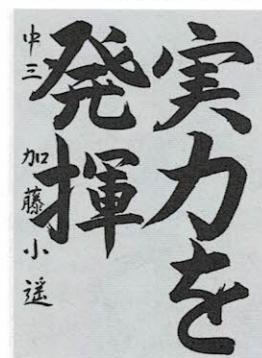 実力を
発揮
中三 加藤小遥